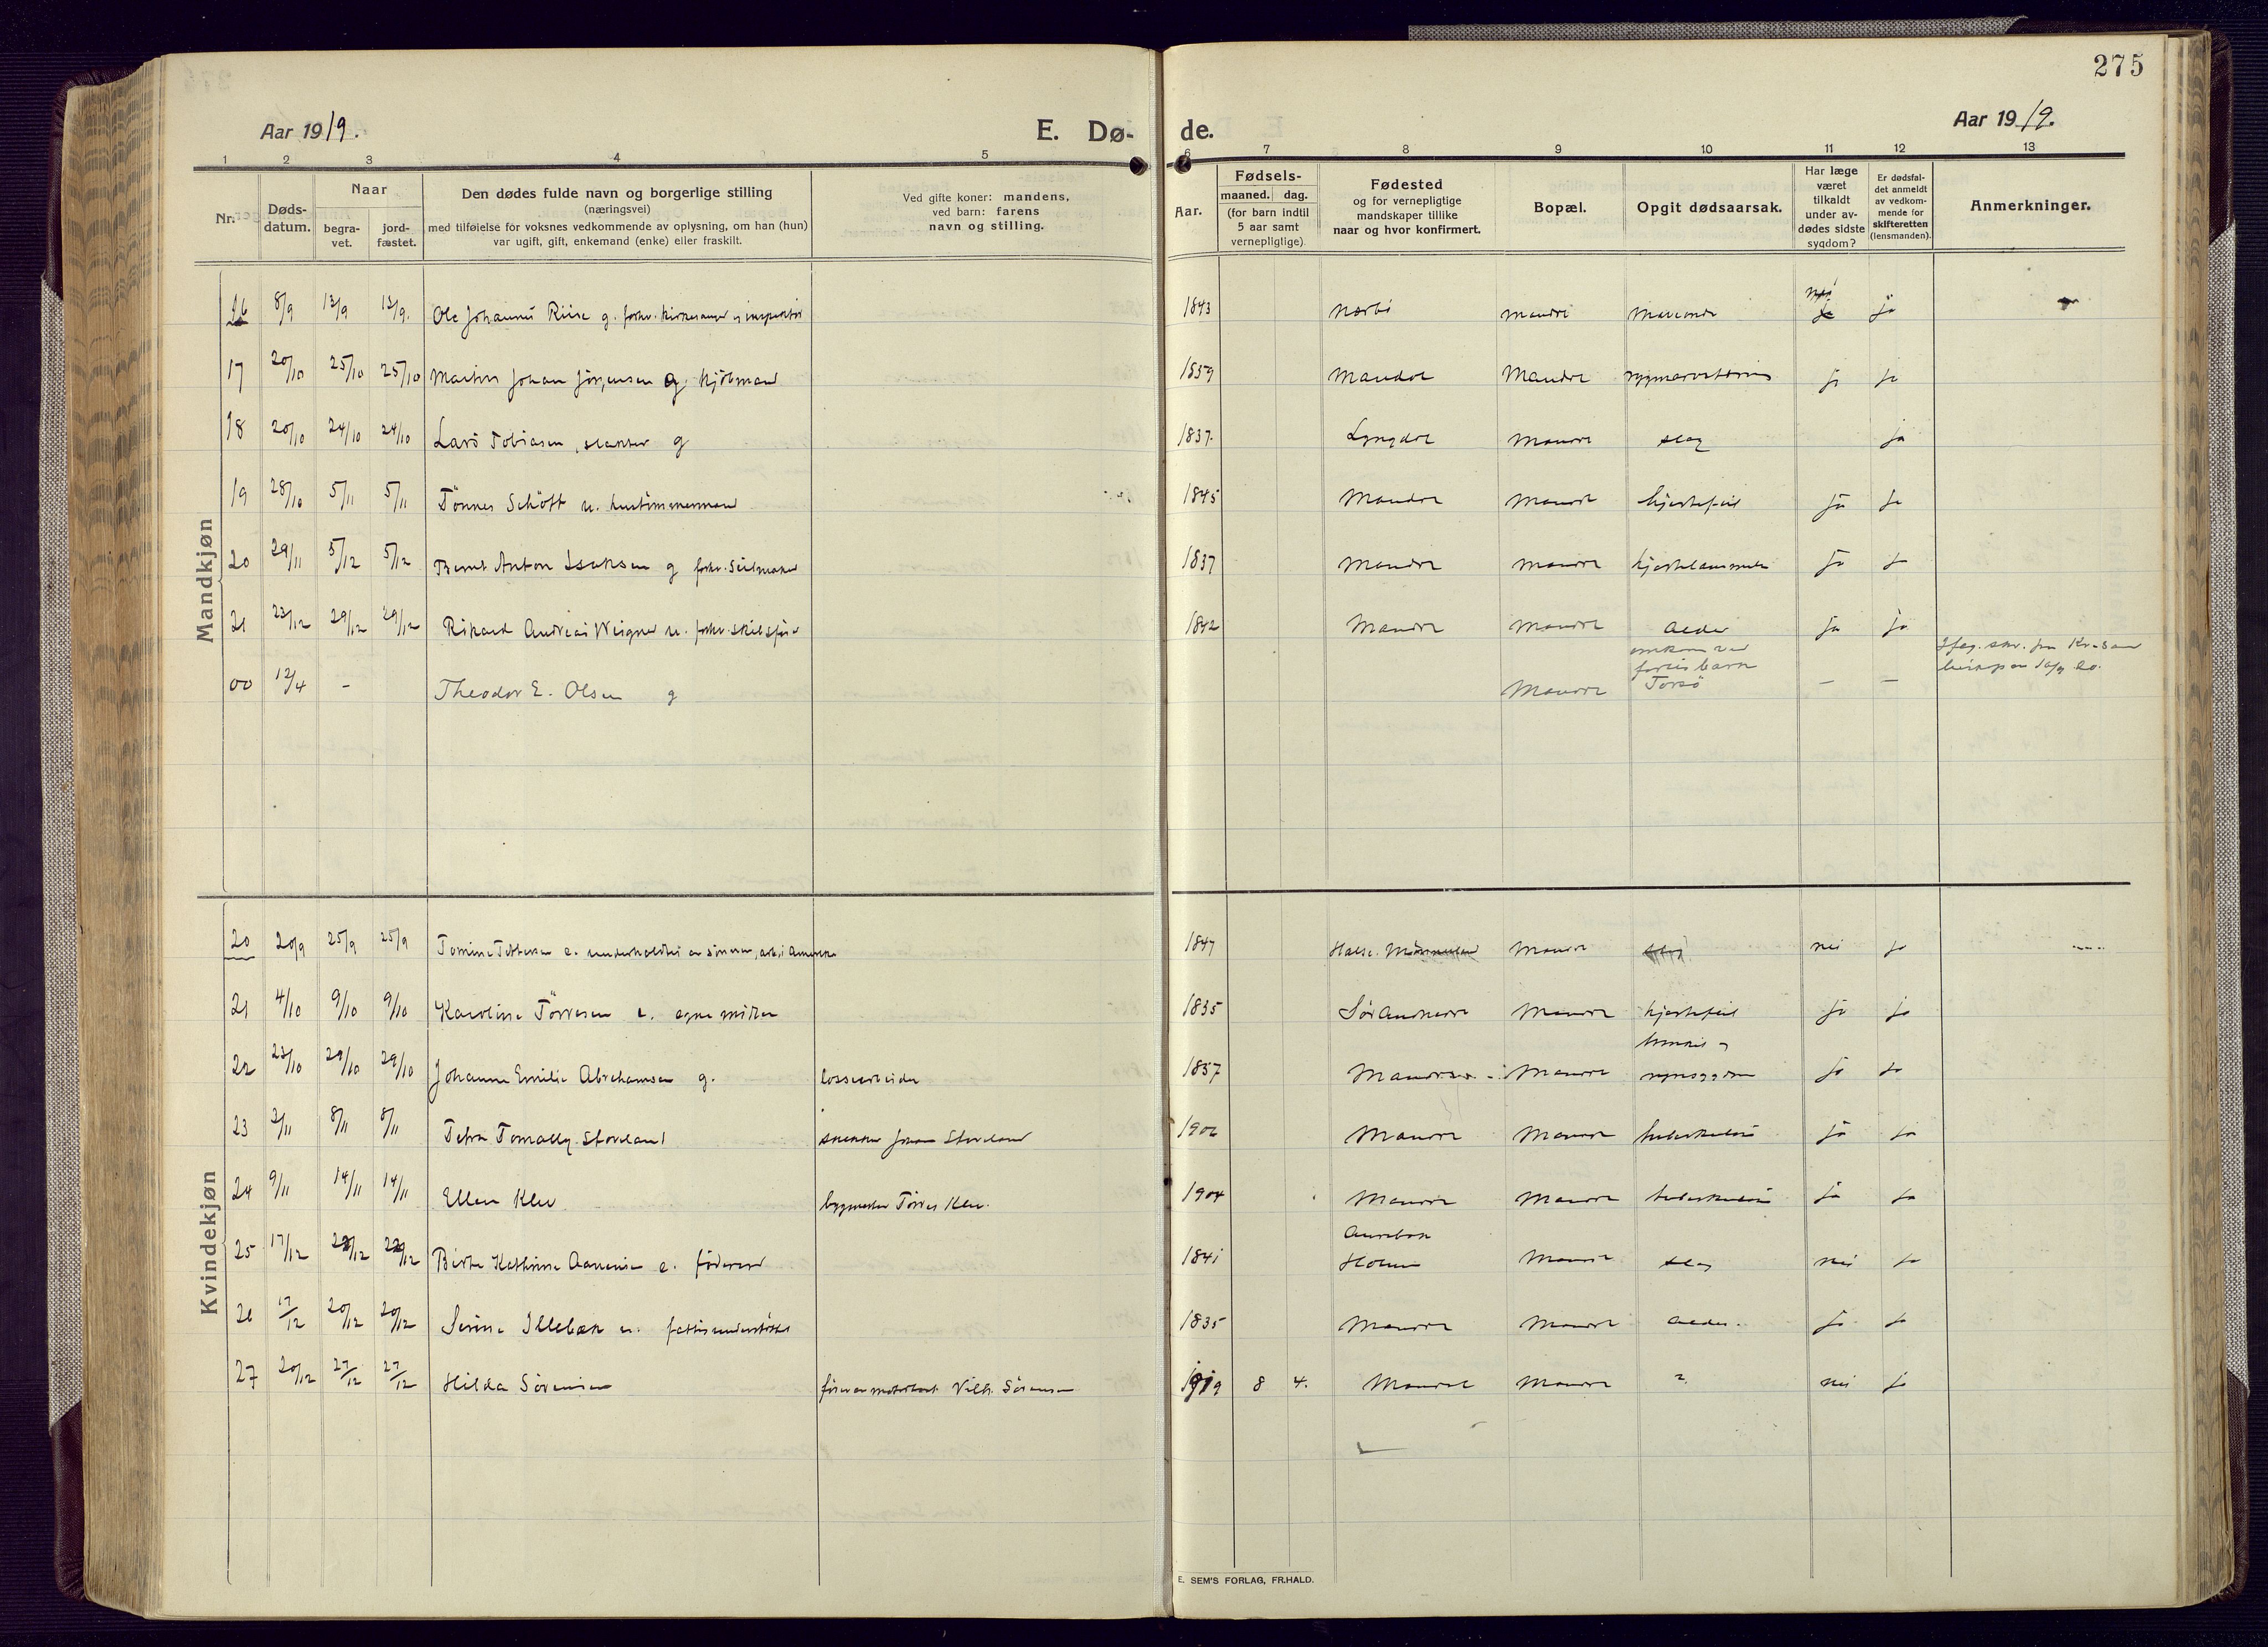 275
Aar 1919.
E. Dø-
de.
Aar 1919.
1 2 3 4 5 6 7 8 9 10 11 12 13
Nr.
Døds-
datum.
Naar
begra-
vet.
jord-
fæstet.
Den dødes fulde navn og borgerlige stilling
(næringsvei)
med tilføielse for voksnes vedkommende av oplysning, om han (hun)
var ugift, gift, enkemand (enke) eller fraskilt.
Ved gifte koner: mandens,
ved barn: farens
navn og stilling.
Aar.
Fødsels-
maaned. dag.
(for barn indtil
5 aar samt
vernepligtige)
Fødested
og for vernepligtige
mandskaper tillike
naar og hvor konfirmert.
Bopæl.
Opgit dødsaarsak.
Har læge
været
tilkaldt
under av-
dødes sidste
sygdom?
Er dødsfal-
det anmeldt
av vedkom-
mende for
skifteretten
(lensmanden).
Anmerkninger.
Mandkjøn
16 8/9 13/9 13/9. Ole Johannes Riise g. forhv. kirkesanger og inspektør 1843 Nærbø Mandal ja
17 20/10 25/10 25/10 Martin Johan Jörgensen g kjöbmand 1859 Mandal Mandal ja ja
18 20/10 24/10 24/10 Lars Tobiasen, g 1837. Lyngdal Mandal slag ja
19 28/10 5/11 5/11 Tönnes Schött u. hustömmermand 1845 Mandal Mandal hjertefeil ja ja
20 29/11 5/12 5/12 Bernt Anton Isaksen g forhv. Seilmaker 1837 Mandal Mandal hjertelammelse ja ja
21 23/12 29/12 29/12 Rikard Andreas Weigner u. forhv. skibsfører 1842 Mandal Mandal alder ja ja
00 12/4 – Theodor E. Olsen g Mandal omkom ved
forlis bark
Torsö – –
Kvindekjøn
20 20/9 25/9 25/9 Tomine Pettersen e. underholdtes av sønnen, arb. i Amerika 1847 Halse. Mandal nei ja
21 4/10 9/10 9/10 Karoline Törresen e. egne midler 1835 Sör Audnedal Mandal hjertefeil ja ja
22 23/10 29/10 29/10 Johanne Emilie Abrahamsen g. lossearbeider 1857 Mandal Mandal ja ja
23 2/11 8/11 8/11 Petra Storeland snekker Johan Storeland Mandal Mandal tuberkulose ja ja
24 9/11 14/11 14/11 Ellen Klev bygmester Törres Klev. 1904 Mandal Mandal tuberkulose ja ja
25 17/12 Birte Kathrine Aanensen e. føderaad 1841 Holum Mandal slag nei ja
26 17/12 20/12 20/12 Serine Illebæk u. fattigunderstöttet 1835 Mandal Mandal alder. ja ja
27 20/12 27/12 27/12 Hilda Sörensen fører av motorbaat Vilh. Sörensen 1919 8 4. Mandal Mandal ? nei ja
E. SEM'S FORLAG, FR.HALD.